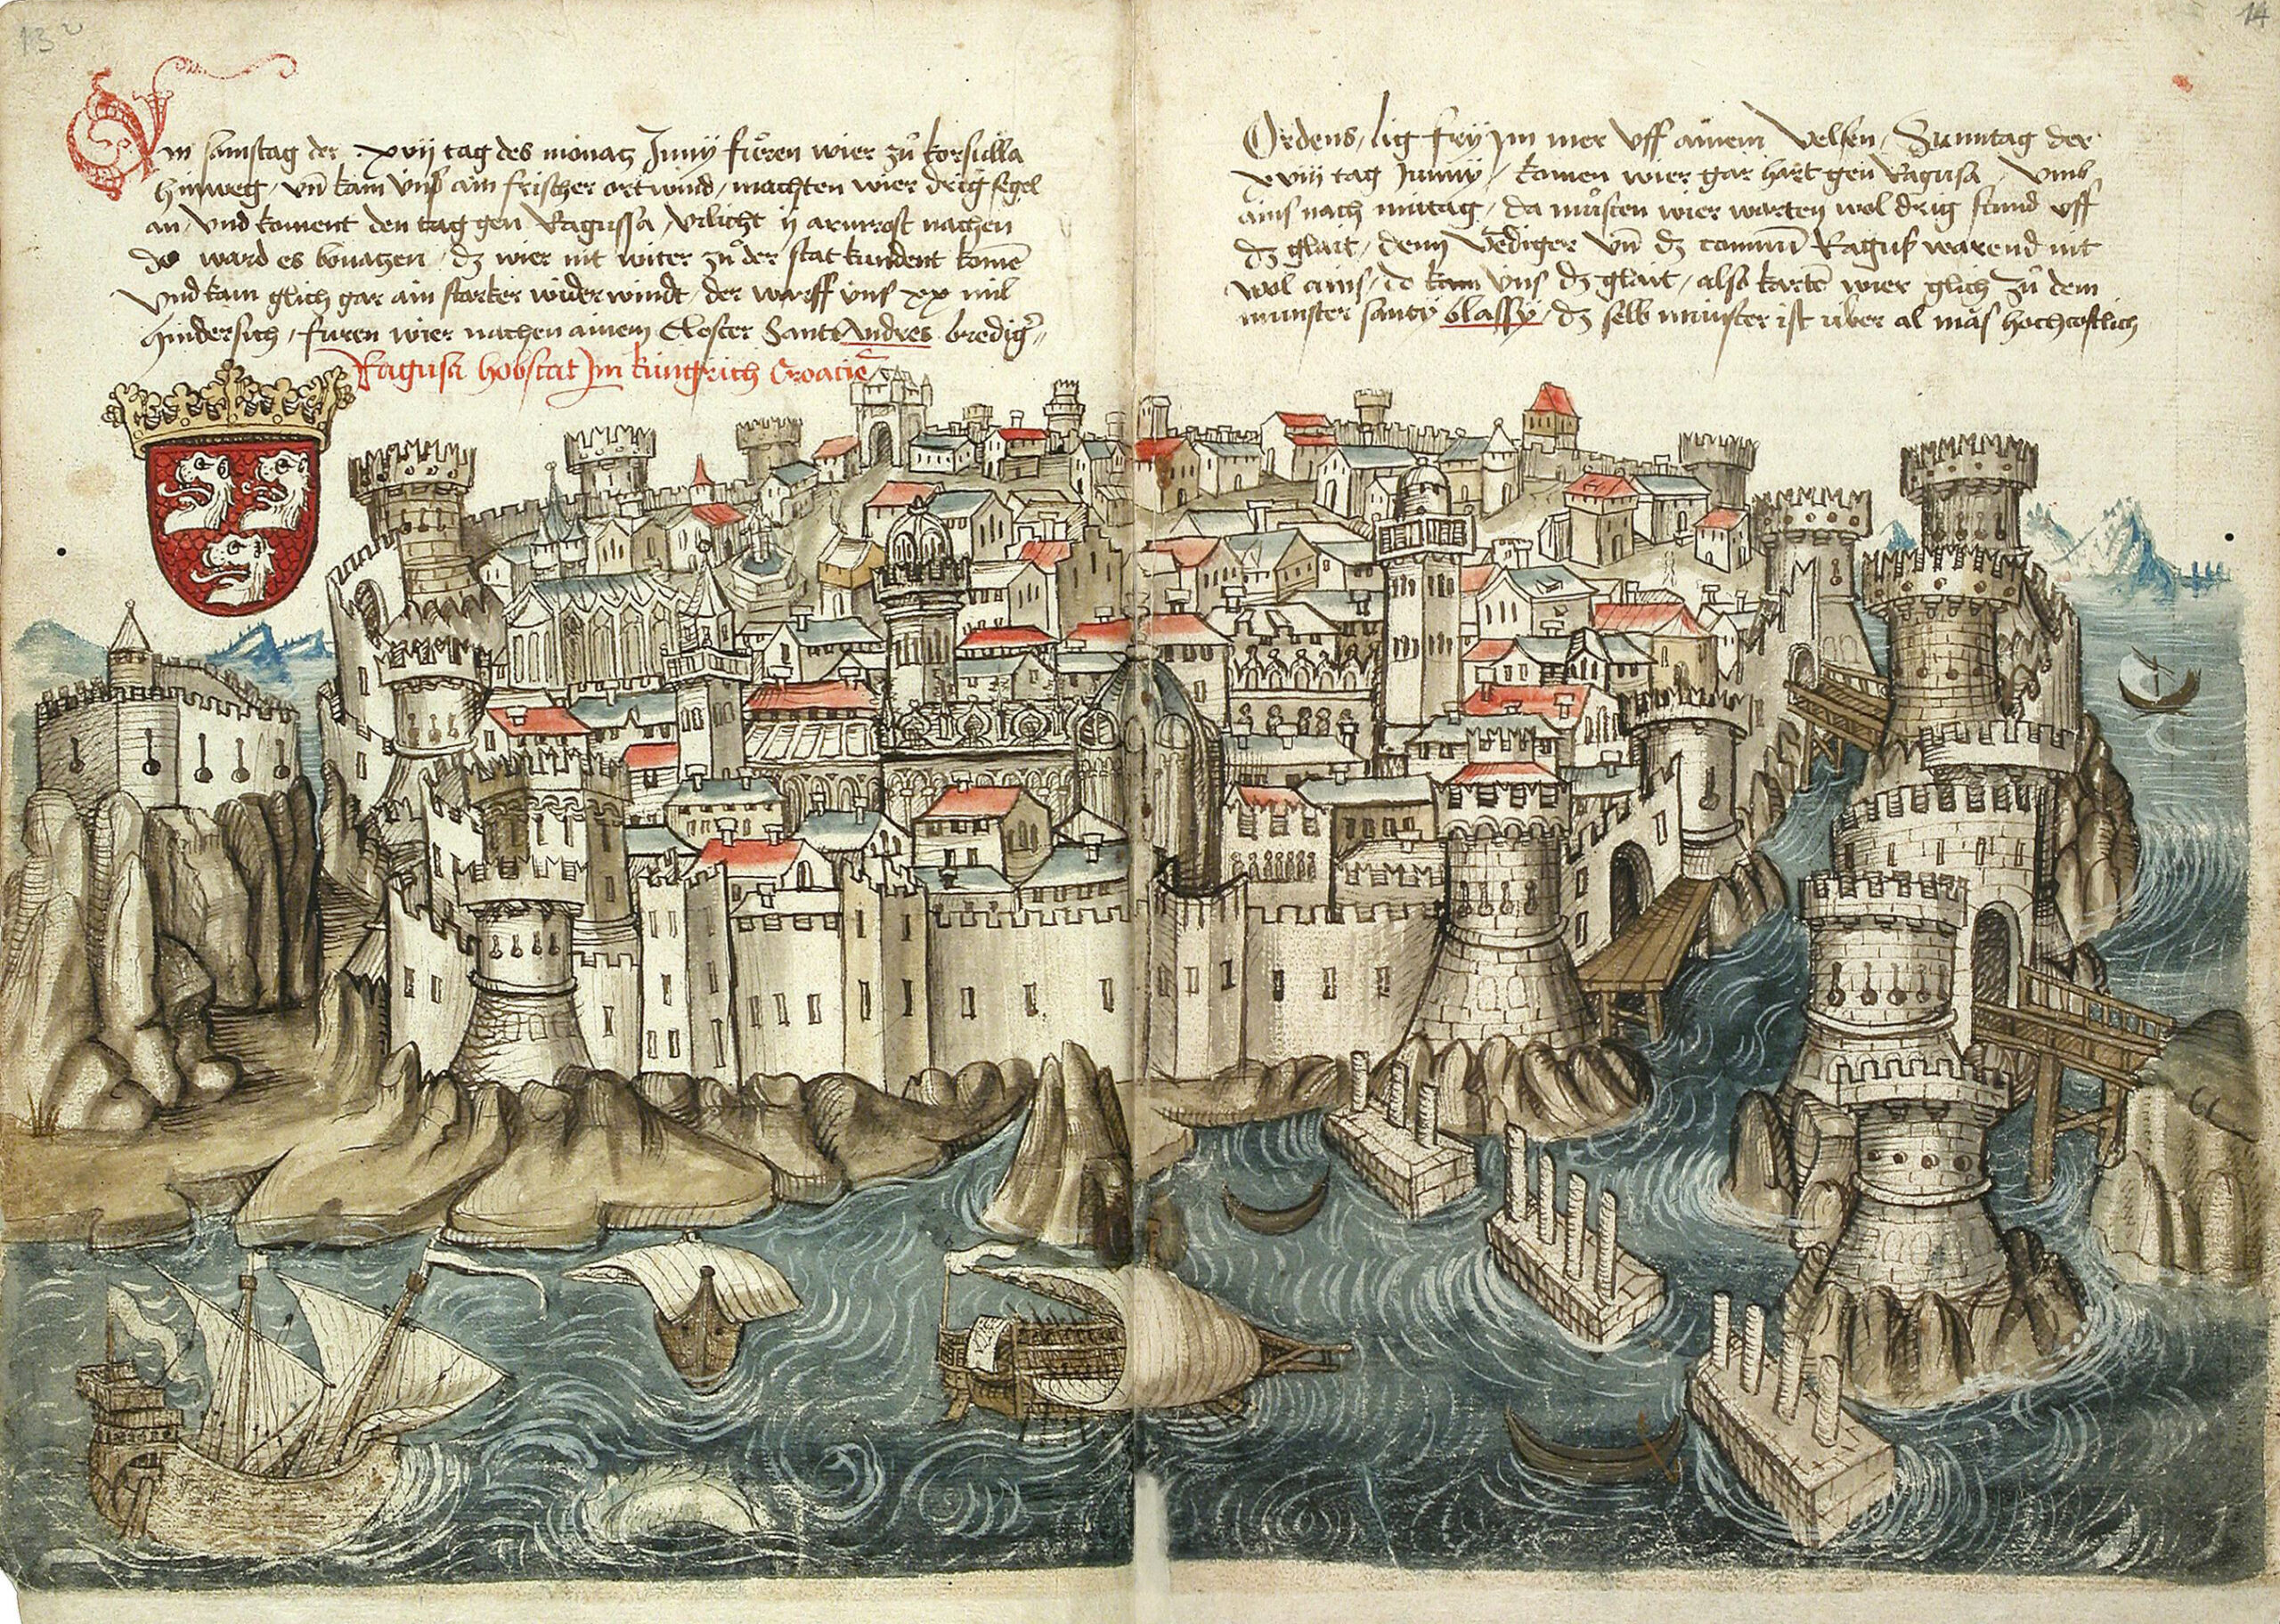 13
An samstag der . xvij tag des monatz Junij füren wier zů korsulla
hinweg / vn̄ kam vnß ain frischer ort wind / machten wier drig segel
an / vnd koment den tag gen Ragussa / vilicht ij armrost nachen
do ward es bonatzen / dz wier nit witer zů der stat kundent komē
vnd kam glich gar ain starker widerwindt / der warff vnß xx mil
hindersich / füren wier nachen ainem Closter Sant Andres bredigr̄
Ragusa hobstat Jm küngrich Croaciē
14
Ordens / lig frÿ Jm mer vff ainem velsen / Sunntag der
xviij tag Junij / komen wier gar hart gen Ragusa / vmb
ains nach mitag / da můsten wier warten wol drig stund vff
dz glait / denn Vēdiger vn̄ dz comun̄ Raguß warend nit
wol ains / do kam vns dz glait / also kartē wier glich zů dem
munster santÿ blassÿ / dz selb munster ist über al mäs hochcostlich